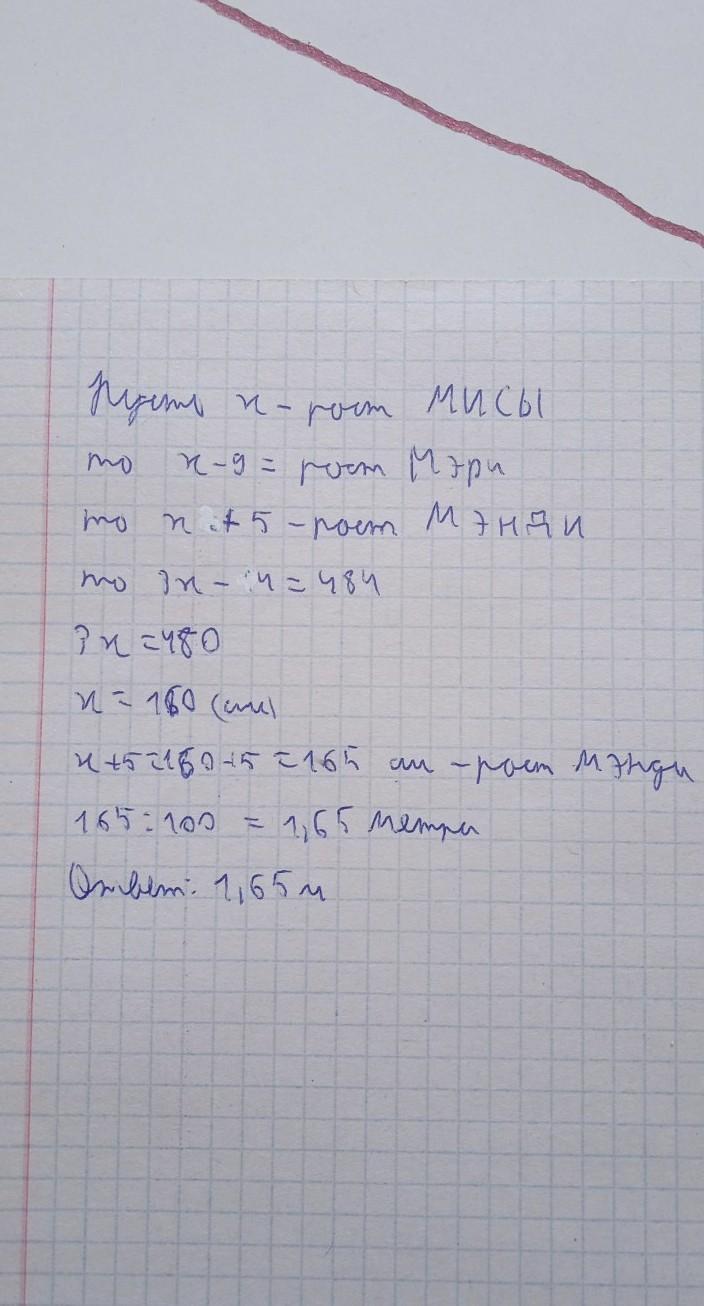 Пусть x - рост МИСЫ
то x-9 = рост Мэри
то x + 5 - рост МЭНДИ
то 3x - 4 = 484
3x = 480
x = 160 (см)
x+5=160+5 = 165 см - рост Мэнди
165:100 = 1,65 метра
Ответ: 1,65 м